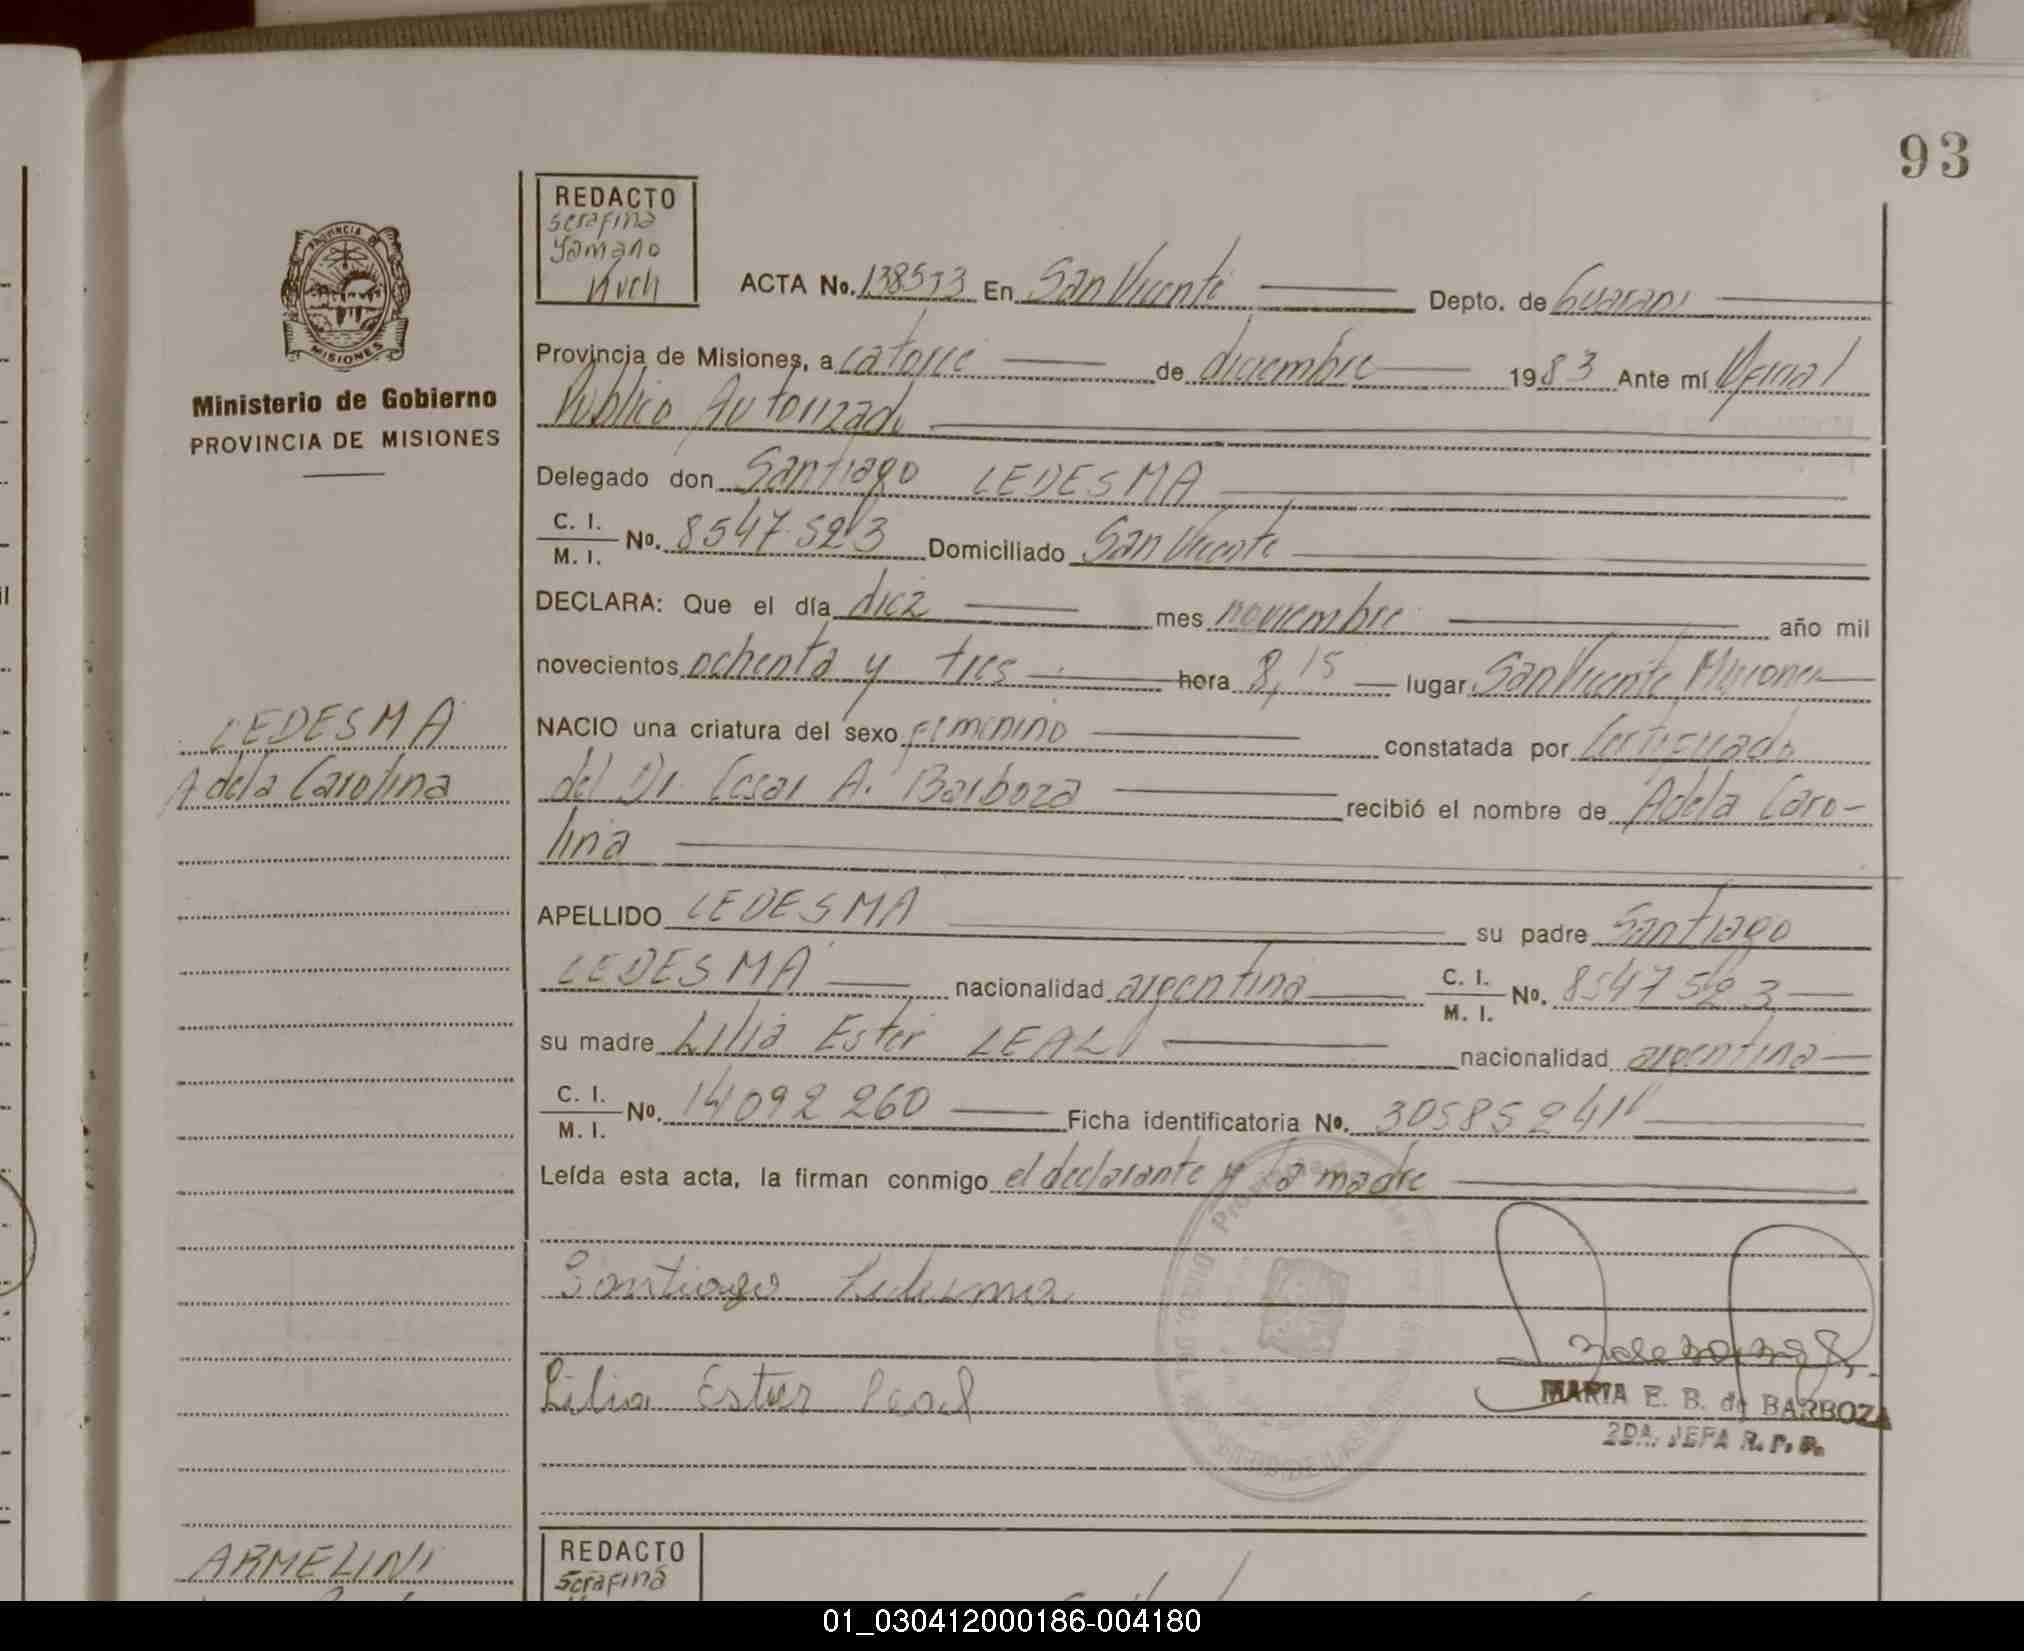 93
REDACTO
Serafina
Yamano
Kuch
PROVINCIA DE
MISIONES
Ministerio de Gobierno
PROVINCIA DE MISIONES
ACTA No. 138573 En San Vicente Depto. de Guarani
Provincia de Misiones, a catorce de diciembre 1983 Ante mí Oficial
Publico Autorizado
Delegado don Santiago LEDESMA
C. I. / M. I. No. 8547.523 Domiciliado San Vicente
DECLARA: Que el día diez mes noviembre año mil
novecientos ochenta y tres hora 8,15 lugar San Vicente Misiones
NACIO una criatura del sexo femenino constatada por Certificado
del Dr. Cesar A. Barboza recibió el nombre de Adela Caro-
lina
LEDESMA
Adela Carolina
APELLIDO LEDESMA su padre Santiago
LEDESMA nacionalidad argentina C. I. / M. I. No. 8547523
su madre Lilia Ester LEAL nacionalidad argentina
C. I. / M. I. No. 14092260 Ficha identificatoria No. 30585241
Leída esta acta, la firman conmigo el declarante y la madre
Santiago Ledesma
Lilia Ester Leal
MARIA E. B. de BARBOZA
2DA. JEFA R. P. P.
ARMELINI
REDACTO
Serafina
01_030412000186-004180